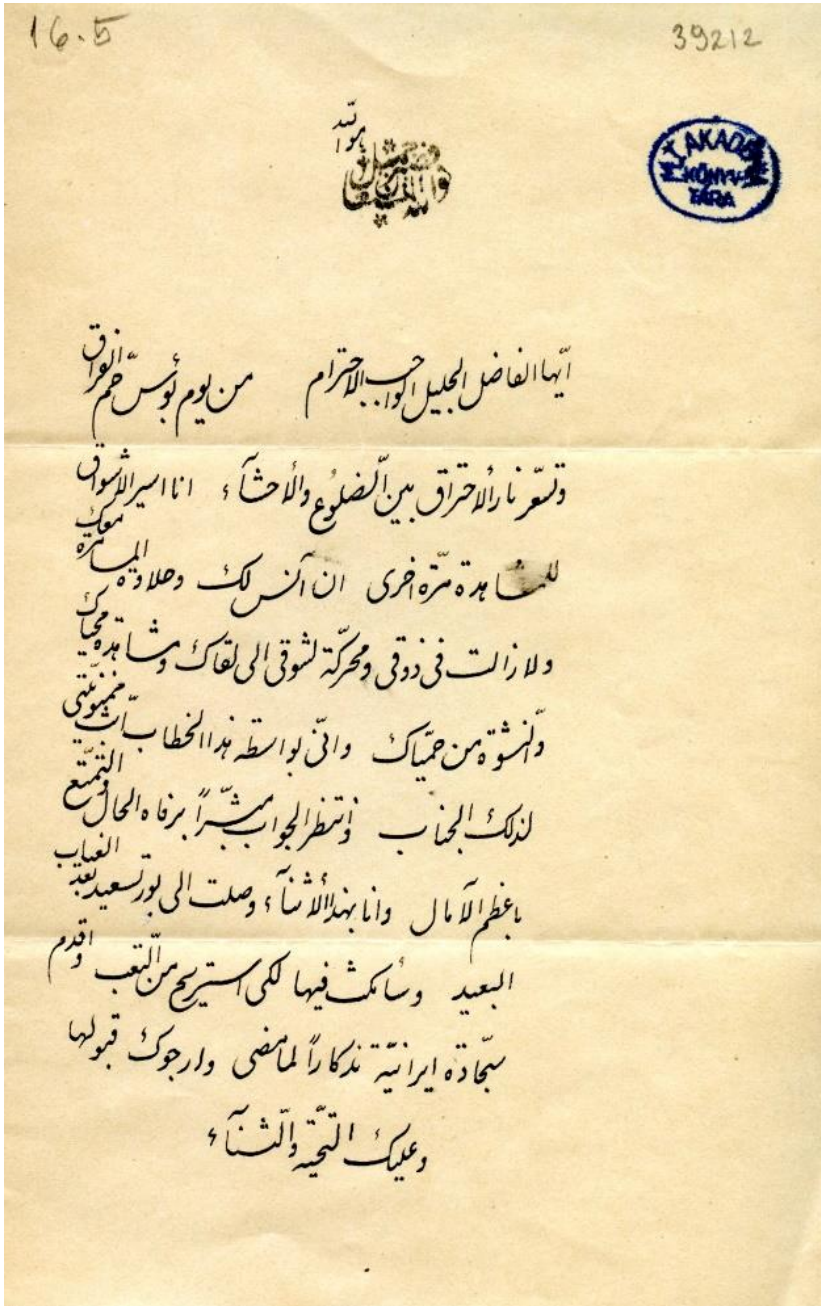 16.5
39212
هو الله
M.T. AKADÉMIA
KÖNYV-
TÁRA
ايّها الفاضل الجليل الواجب الاحترام من يوم بؤس حمّ الفراق
وتسعّر نار الأحتراق بين الضلوع والأحشآء انا اسير الاشواق
للمشاهدة مرّة اخرى ان آنس لك وحلاوة المسامرة معك
ولا زالت فى ذوقى ومحرّكة لشوقى الى لقاك ومشاهدة محياك
والنشوة من حميّاك وانّى بواسطة هذا الخطاب ابّث ممنونيّتى
لذلك الجناب وانتظر الجواب مبشّراً برفاه الحال والتمتّع
باعظم الآمال وانا بهذه الأثنآء وصلت الى بورتسعيد بعد الغياب
البعيد وسأمكث فيها لكى استريح من التعب واقدم
سجّادة ايرانيّة تذكاراً لما مضى وارجوك قبولها
وعليك التحيّة والثنآء